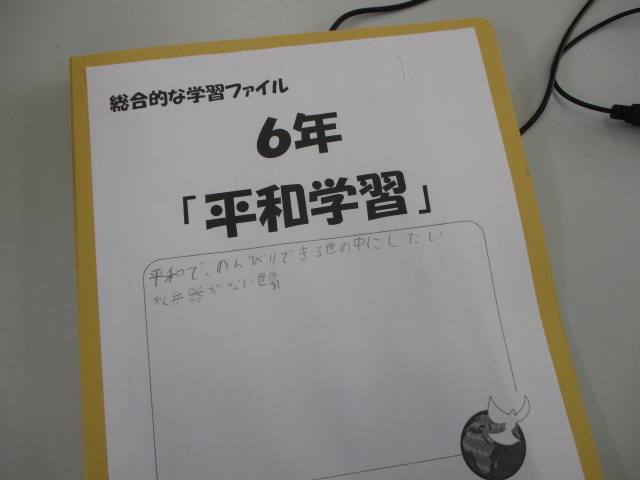 総合的な学習ファイル
6年
「平和学習」
平和で、のんびりできる世の中にしたい
兵器がない世界